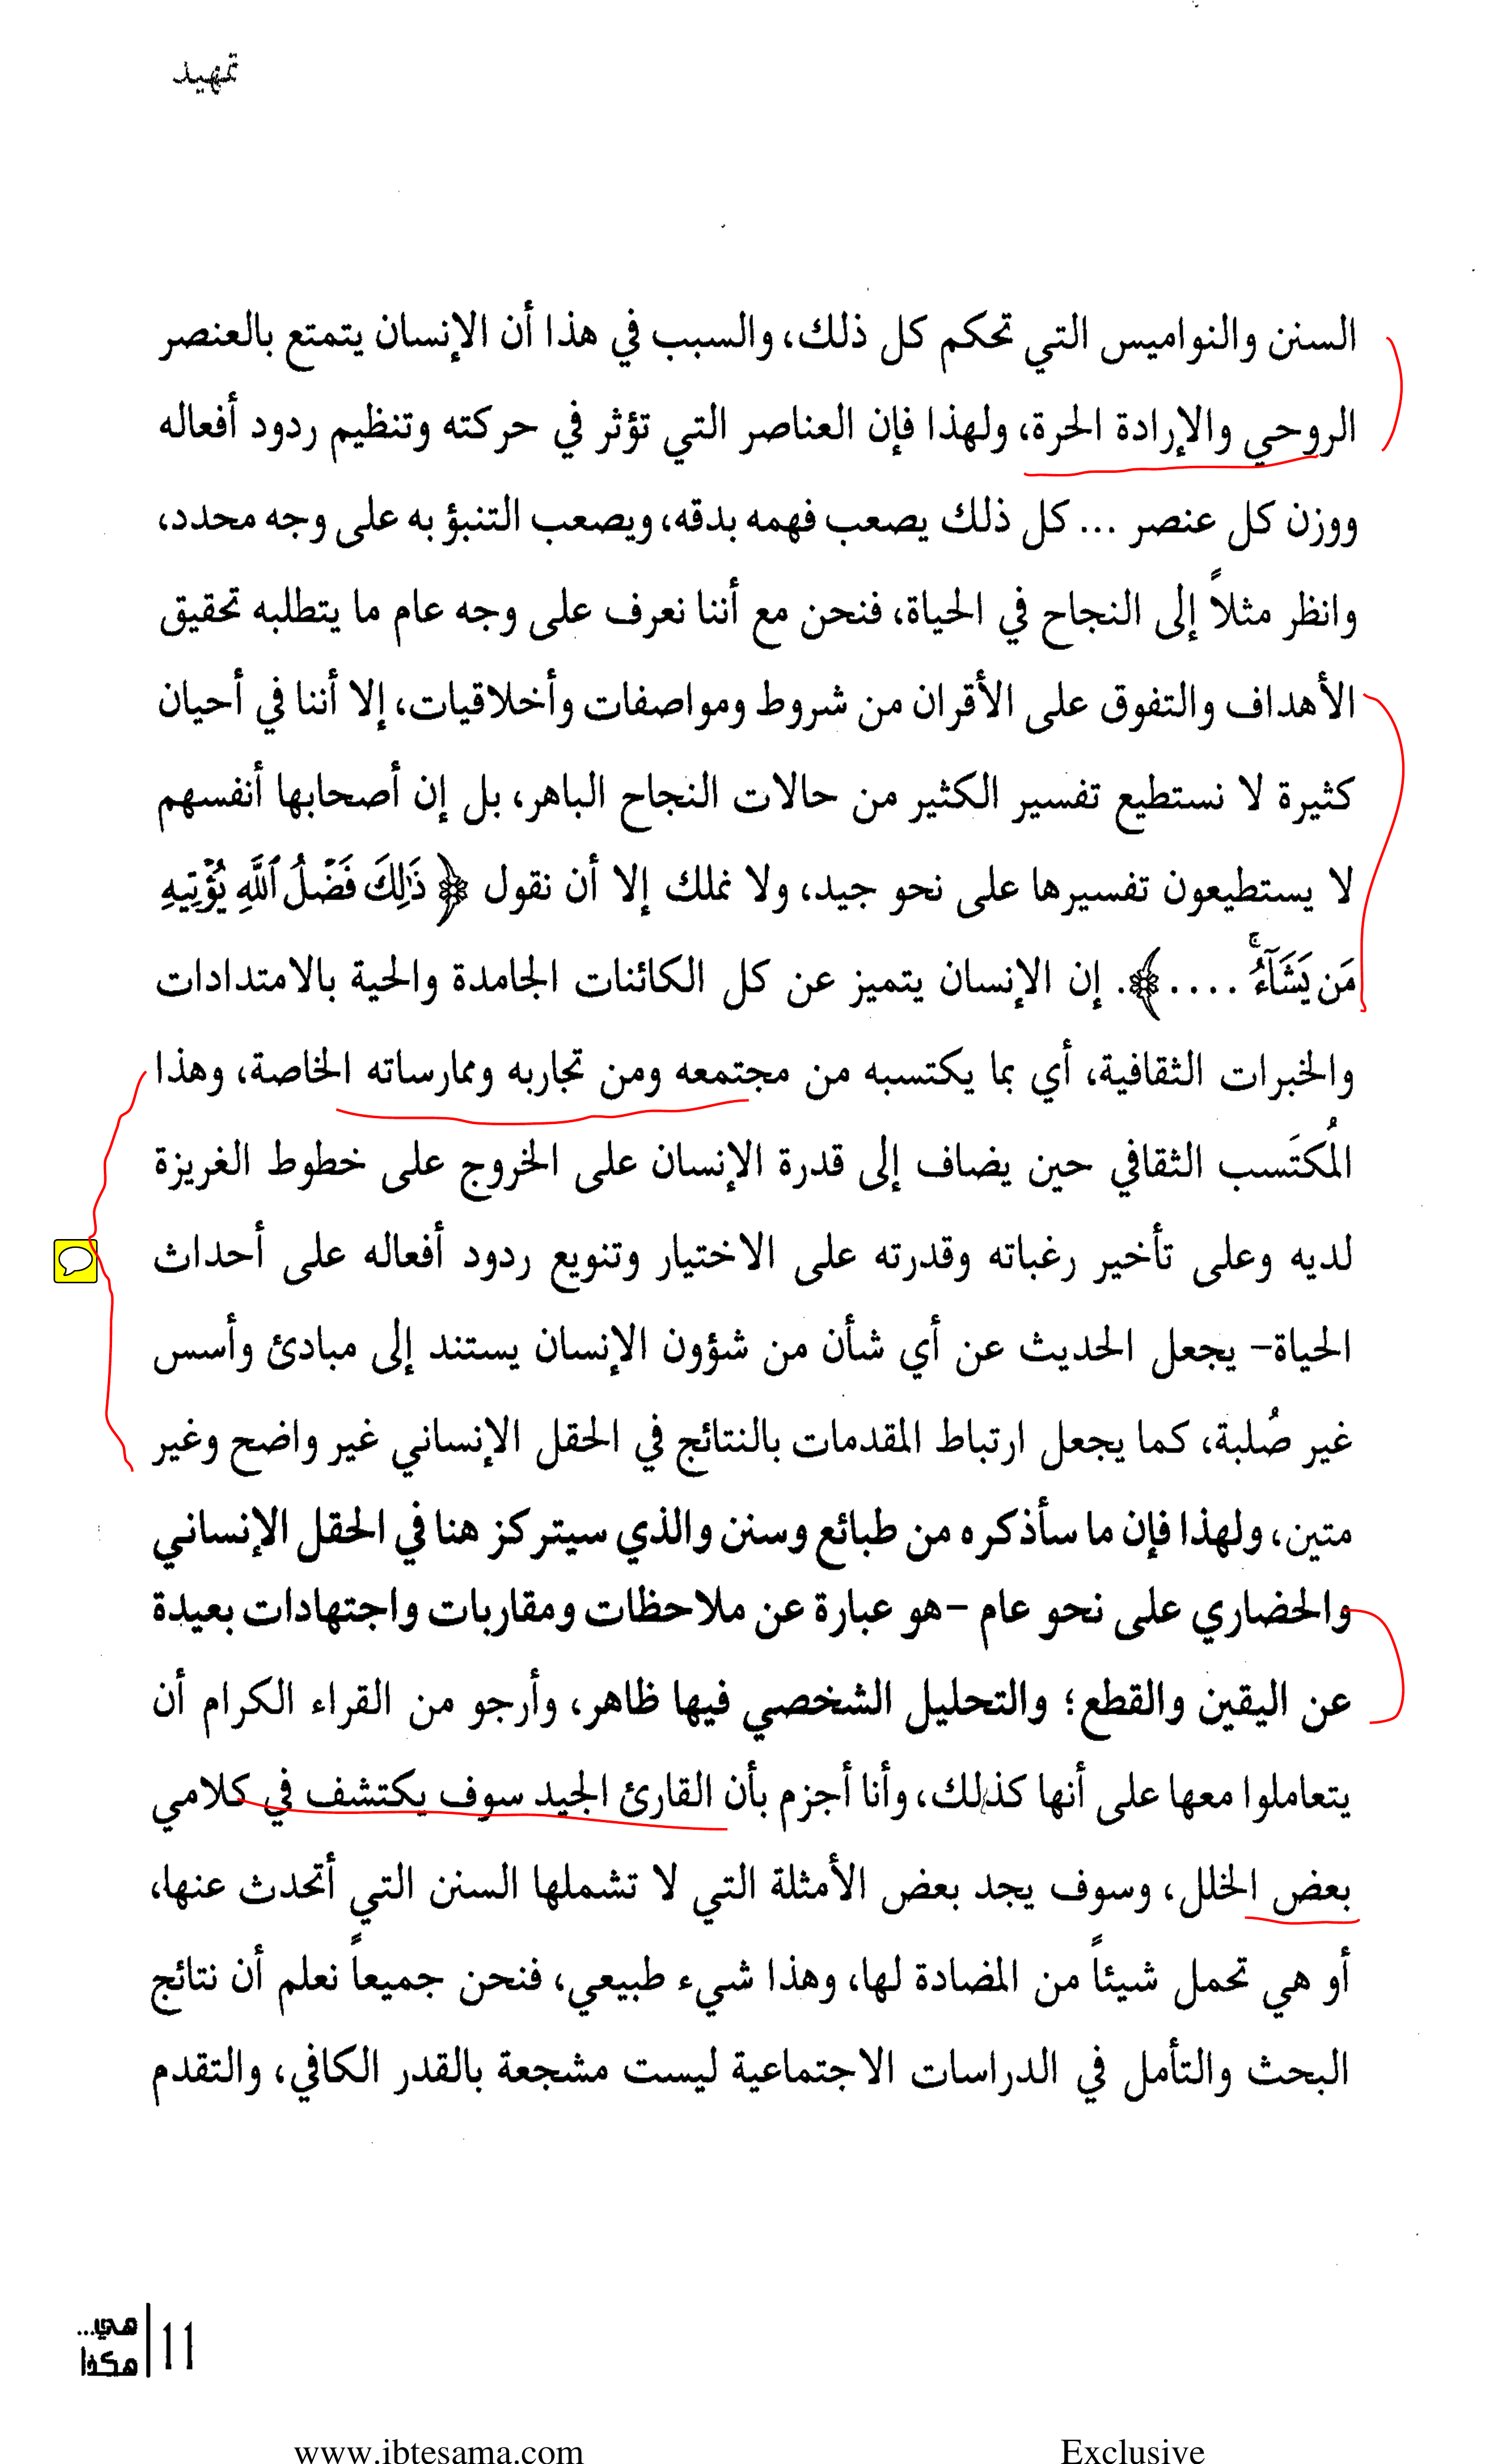 تمهيد
السنن والنواميس التي تحكم كل ذلك، والسبب في هذا أن الإنسان يتمتع بالعنصر
الروحي والإرادة الحرة، ولهذا فإن العناصر التي تؤثر في حركته وتنظيم ردود أفعاله
ووزن كل عنصر ... كل ذلك يصعب فهمه بدقه، ويصعب التنبؤ به على وجه محدد،
وانظر مثلاً إلى النجاح في الحياة، فنحن مع أننا نعرف على وجه عام ما يتطلبه تحقيق
الأهداف والتفوق على الأقران من شروط ومواصفات وأخلاقيات، إلا أننا في أحيان
كثيرة لا نستطيع تفسير الكثير من حالات النجاح الباهر، بل إن أصحابها أنفسهم
لا يستطيعون تفسيرها على نحو جيد، ولا نملك إلا أن نقول ﴿ ذَٰلِكَ فَضْلُ ٱللَّهِ يُؤْتِيهِ
مَن يَشَآءُۚ ....﴾. إن الإنسان يتميز عن كل الكائنات الجامدة والحية بالامتدادات
والخبرات الثقافية، أي بما يكتسبه من مجتمعه ومن تجاربه وممارساته الخاصة، وهذا
المُكتَسب الثقافي حين يضاف إلى قدرة الإنسان على الخروج على خطوط الغريزة
لديه وعلى تأخير رغباته وقدرته على الاختيار وتنويع ردود أفعاله على أحداث
الحياة- يجعل الحديث عن أي شأن من شؤون الإنسان يستند إلى مبادئ وأسس
غير صُلبة، كما يجعل ارتباط المقدمات بالنتائج في الحقل الإنساني غير واضح وغير
متين، ولهذا فإن ما سأذكره من طبائع وسنن والذي سيتركز هنا في الحقل الإنساني
والحضاري على نحو عام -هو عبارة عن ملاحظات ومقاربات واجتهادات بعيدة
عن اليقين والقطع؛ والتحليل الشخصي فيها ظاهر، وأرجو من القراء الكرام أن
يتعاملوا معها على أنها كذلك، وأنا أجزم بأن القارئ الجيد سوف يكتشف في كلامي
بعض الخلل، وسوف يجد بعض الأمثلة التي لا تشملها السنن التي أتحدث عنها،
أو هي تحمل شيئاً من المضادة لها، وهذا شيء طبيعي، فنحن جميعاً نعلم أن نتائج
البحث والتأمل في الدراسات الاجتماعية ليست مشجعة بالقدر الكافي، والتقدم
11
هي...
هكذا
www.ibtesama.com
Exclusive